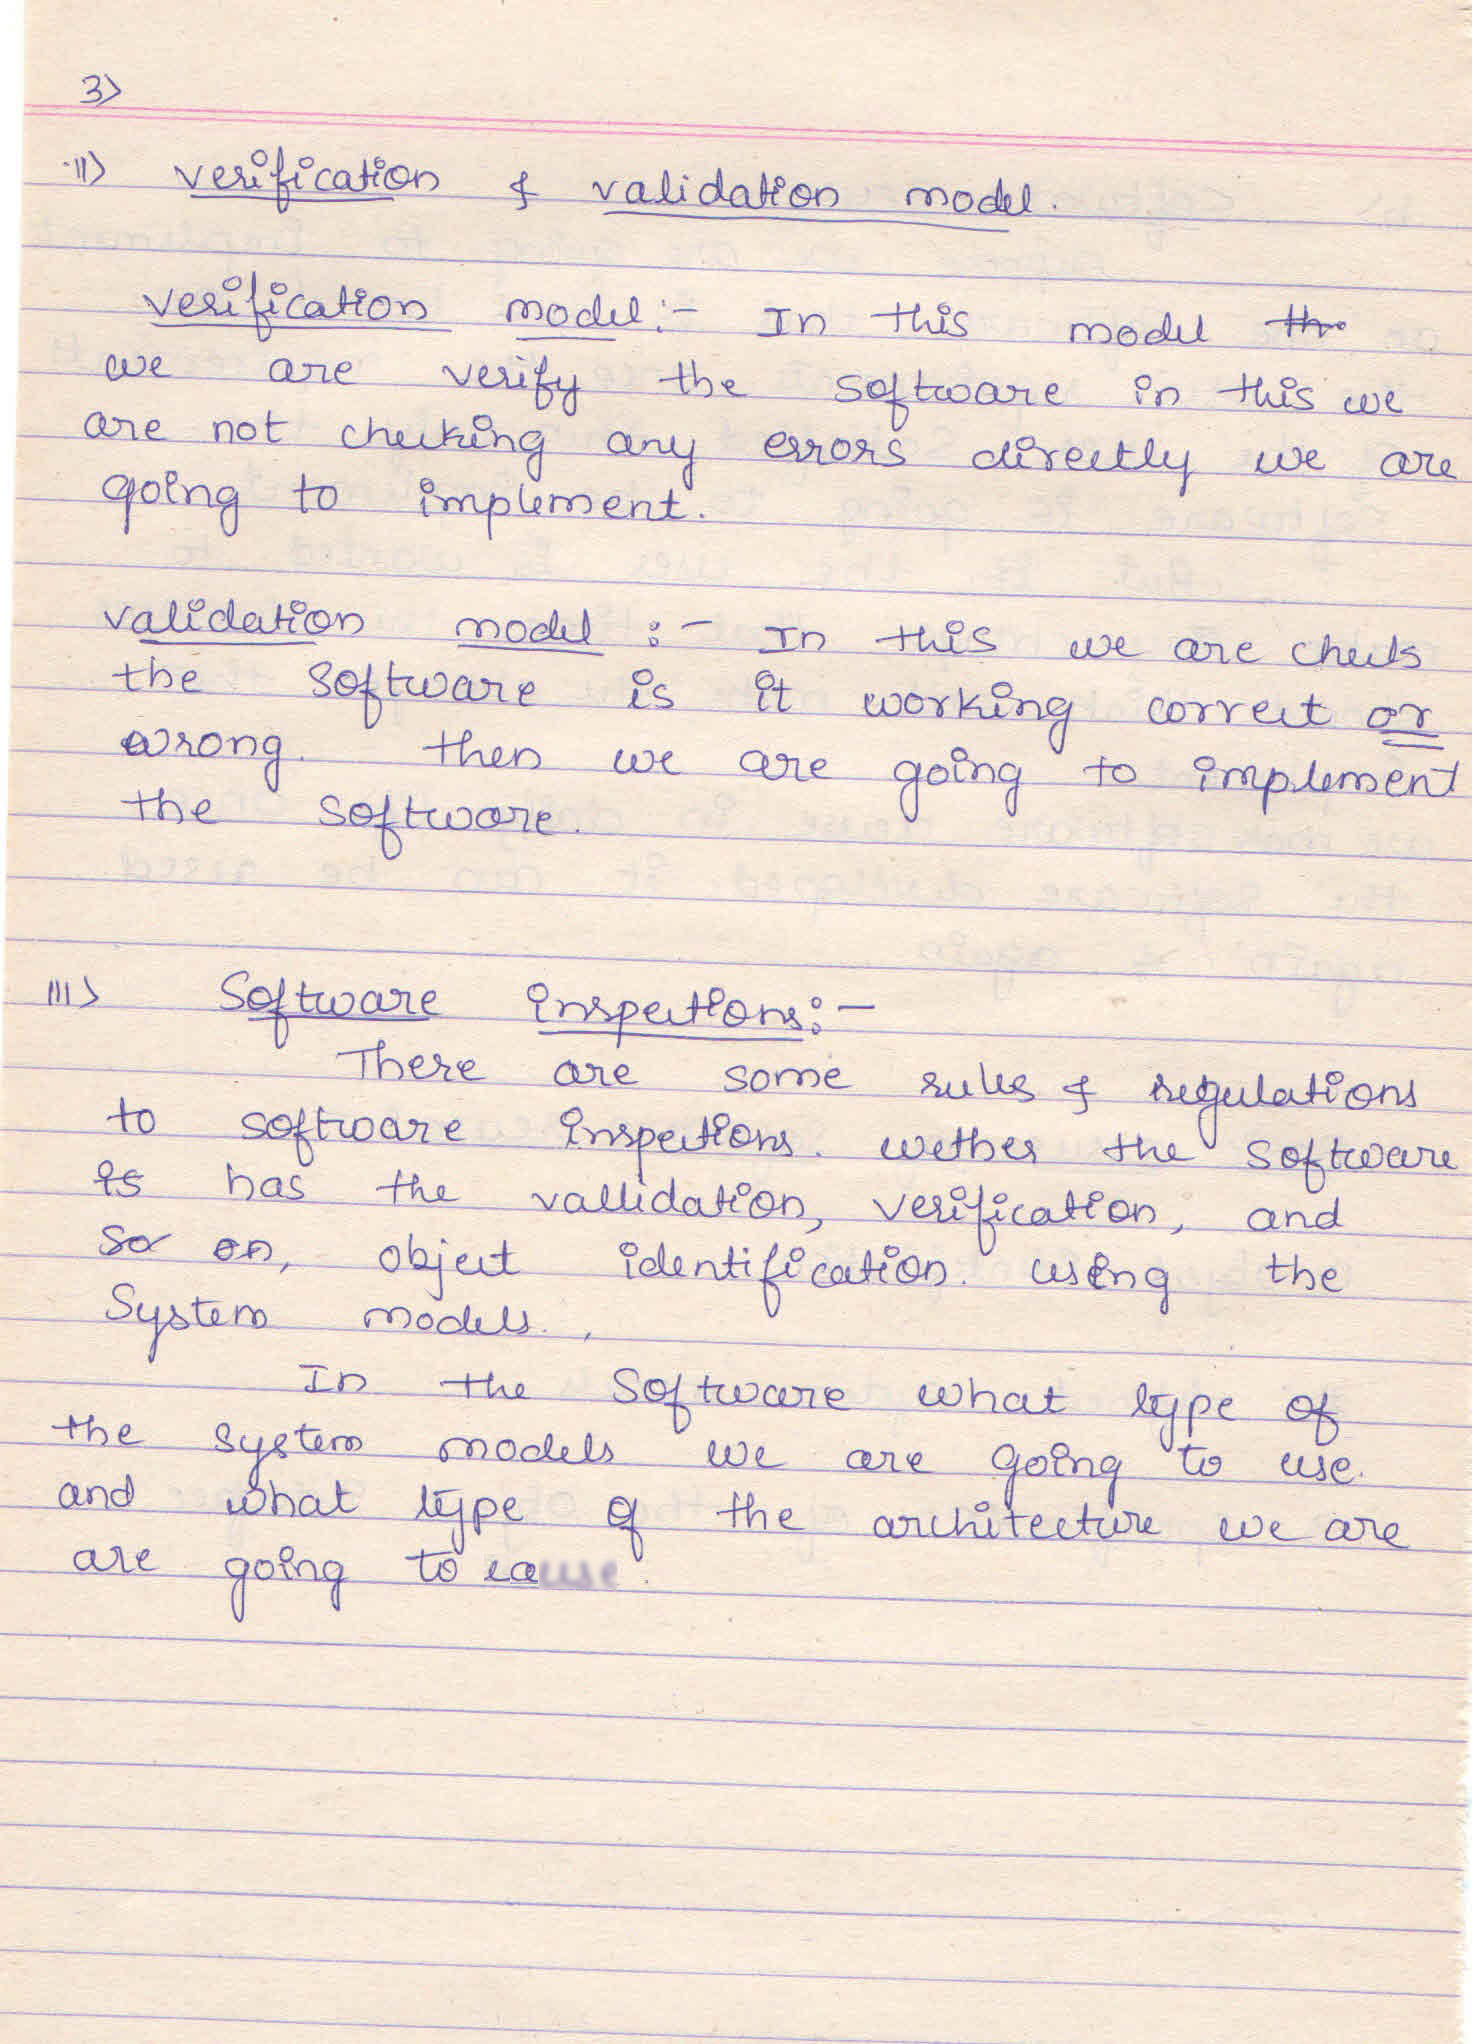 3>
ii> verification & validation model.
verification model:- In this model
we are verify the software in this we
are not checking any errors directly we are
going to implement.
validation model :- In this we are check
the software is it working correct or
wrong. then we are going to implement
the software.
III> Software inspections:-
There are some rules & regulations
to software inspections. wether the software
is has the vallidation, verification, and
so on, object identification. using the
System models.
In the software what type of
the system models we are going to use.
and what type of the architecture we are
are going to